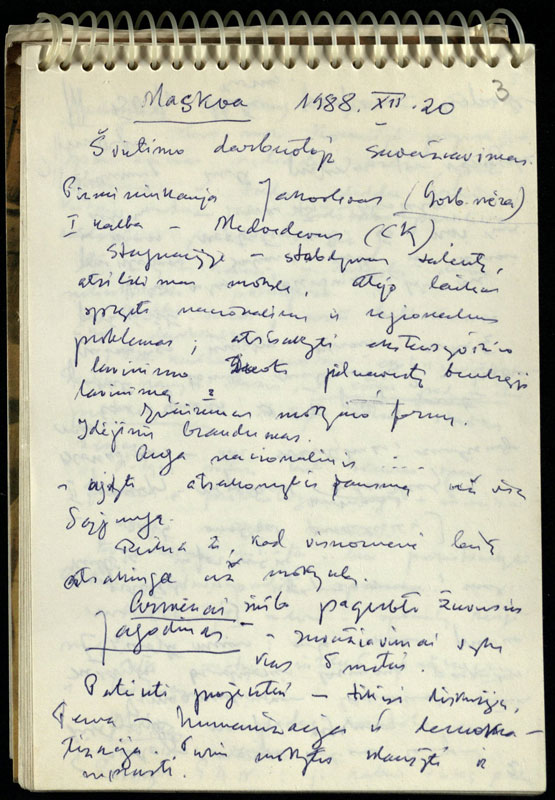 3
Maskva 1988.XII.20
Švietimo darbuotojų suvažiavimas.
Pirmininkauja (Gorb. nėra)
I kalba – Medvedevas (CK)
Stagnacijoje – stabdymas talentų,
atsilikimas mokslo, atėjo laikas
spręsti nacionalines ir regionalines
problemas; atsisakyti ekstensyvinio
lavinimo Duoti pilnavertį bendrąjį
lavinimą
mokymo formų.
Idėjinis brandumas.
Auga nacionalinis ...
– ugdyti atsakomybės jausmą už visą
Sąjungą.
kad visuomenė būtų
atsakinga už mokyklą.
Armėnai siūlo pagerbti žuvusius
Jagodinas – suvažiavimai vyks
kas 5 metus.
Pateikti projektai – diskusija,
Tema – Humanizacija ir demokra-
tizacija mokytis klausyti ir
suprasti.